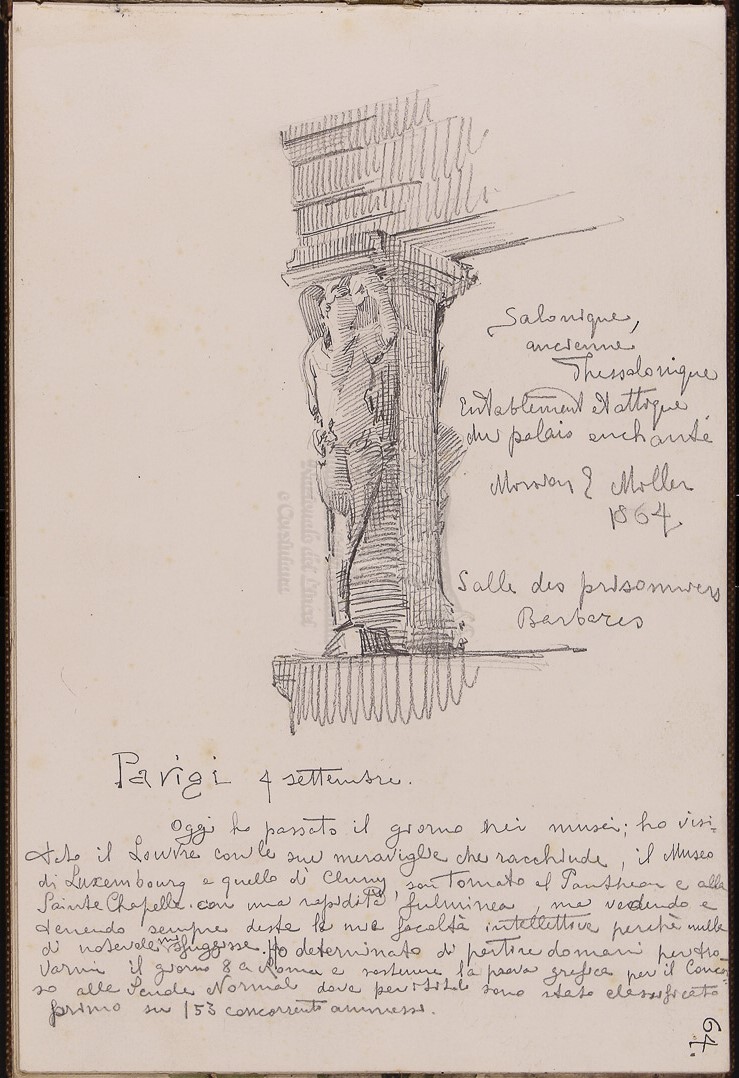 Salonique,
ancienne
Thessalonique
Entablement et attique
du palais enchanté
E Moller
1864
Salle des prisonniers
Barbares
Parigi 4 settembre.
Oggi ho passato il giorno nei musei; ho visi-
tato il Louvre con le sue meraviglie che racchiude, il Museo
di Luxembourg e quello di Cluny, son tornato al Pantheon e alla
Sainte Chapelle con una rapidità fulminea, ma vedendo e
tenendo sempre deste le mie facoltà intellettive perchè nulla
di notevole mi sfuggisse. Ho determinato di partire domani per tro-
varmi il giorno 8 a Roma e sostenere la prova grafica per il Concor-
so alle Scuole Normali dove per titoli sono stato classificato
primo su 153 concorrenti ammessi.
64.